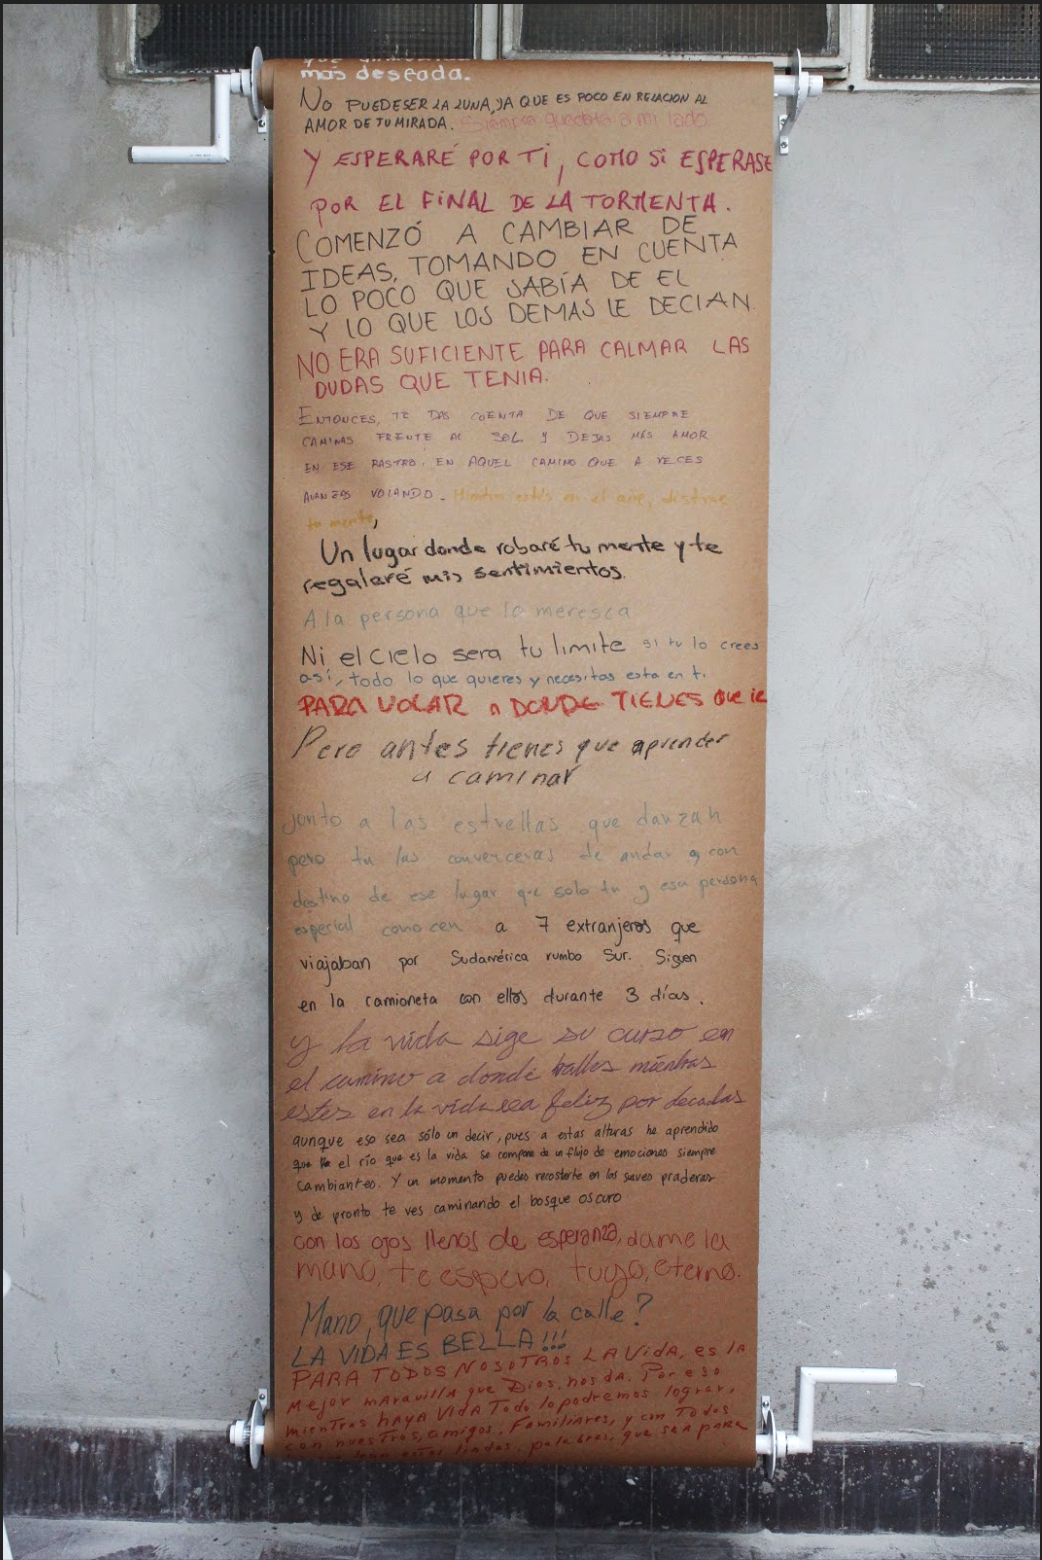 más deseada.
No PUEDE SER LA LUNA, YA QUE ES POCO EN RELACION AL
AMOR DE TU MIRADA. Siempre quedate a mi lado
Y ESPERARÉ POR TI, COMO SI ESPERASE
POR EL FINAL DE LA TORMENTA.
COMENZÓ A CAMBIAR DE
IDEAS, TOMANDO EN CUENTA
LO POCO QUE SABÍA DE EL
Y LO QUE LOS DEMAS LE DECIAN
NO ERA SUFICIENTE PARA CALMAR LAS
DUDAS QUE TENIA.
ENTONCES, TE DAS CUENTA DE QUE SIEMPRE
CAMINAS FRENTE AL SOL Y DEJAS MÁS AMOR
EN ESE RASTRO, EN AQUEL CAMINO QUE A VECES
AVANZAS VOLANDO. Mientras estés en el aire,
tu mente,
Un lugar donde robaré tu mente y te
regalaré mis sentimientos.
A la persona que lo meresca
Ni el cielo sera tu limite si tu lo crees
así, todo lo que quieres y necesitas esta en ti
PARA VOLAR a DONDE TIENES QUE IR
Pero antes tienes que aprender
a caminar
junto a las estrellas que danzan
pero tu las convenceras de andar y con
destino de ese lugar que solo tu y esa persona
especial conocen a 7 extranjeros que
viajaban por Sudamérica rumbo Sur. Siguen
en la camioneta con ellos durante 3 días.
y la vida sige su curso en
el camino a donde balles mientras
estes en la vida sea feliz por decadas
aunque eso sea sólo un decir, pues a estas alturas he aprendido
que el río que es la vida se compone de un flujo de emociones siempre
cambiantes. Y un momento puedes recostarte en las suaves praderas
y de pronto te ves caminando el bosque oscuro
con los ojos llenos de esperanza, dame la
mano, te espero, tuyo, eterno.
Mano, que pasa por la calle?
LA VIDA ES BELLA!!!
PARA TODOS NOSOTROS LA VIDA, es la
Mejor maravilla que Dios, nos da. Por eso
mientras haya vida todo lo podremos lograr,
con nuestros, amigos, Familiares, y con Todos
estas lindas, palabras, que sea para